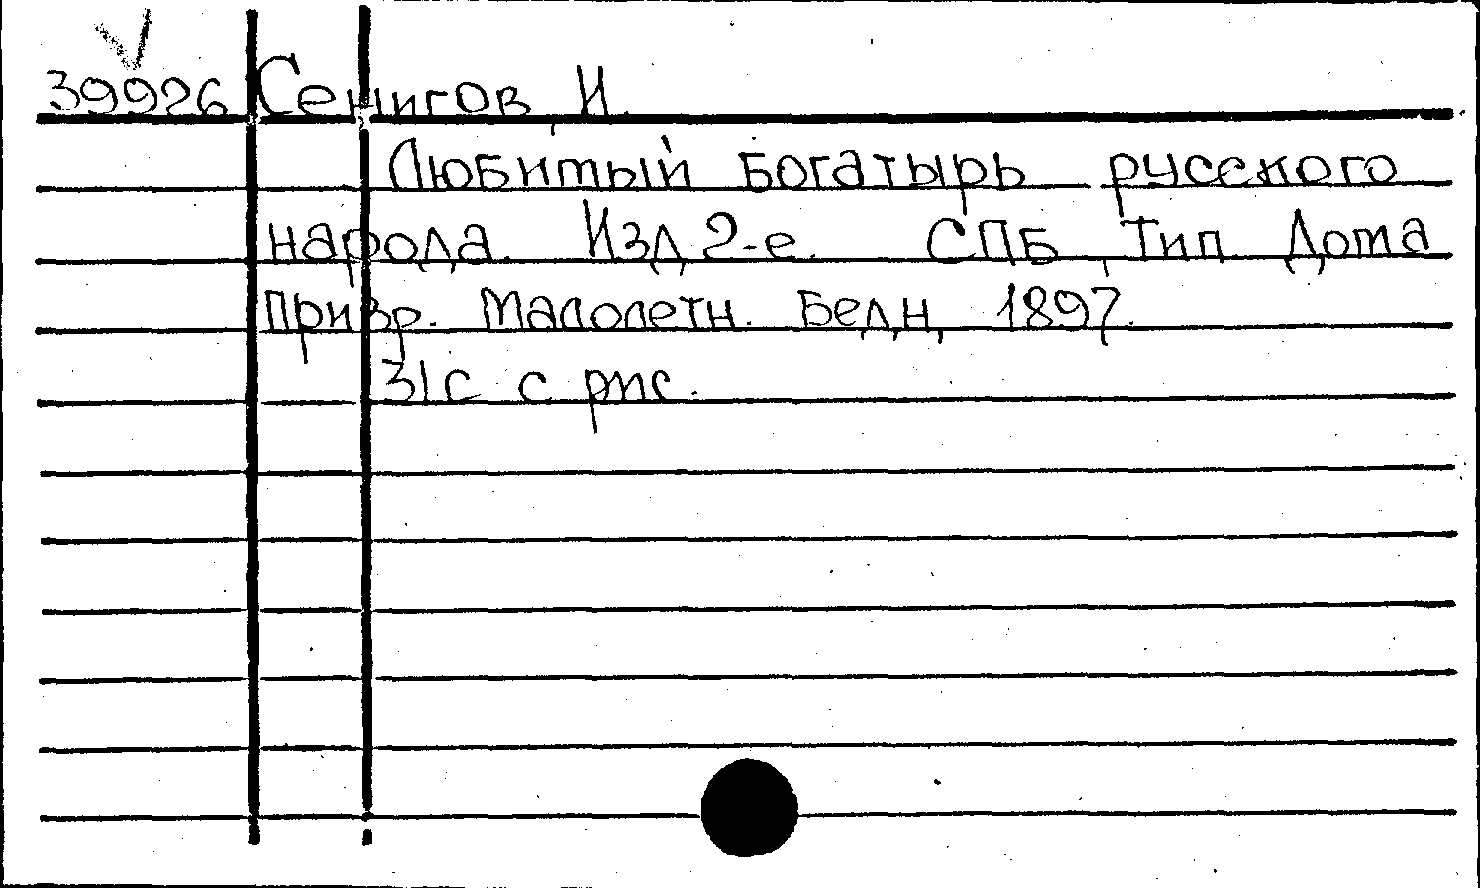 39926 Сенигов, И.
Любимый богатырь русского
народа. Изд. 2-е. СПБ, Тип. Дома
Призр. Малолетн. Бедн., 1897.
31с. с рис.